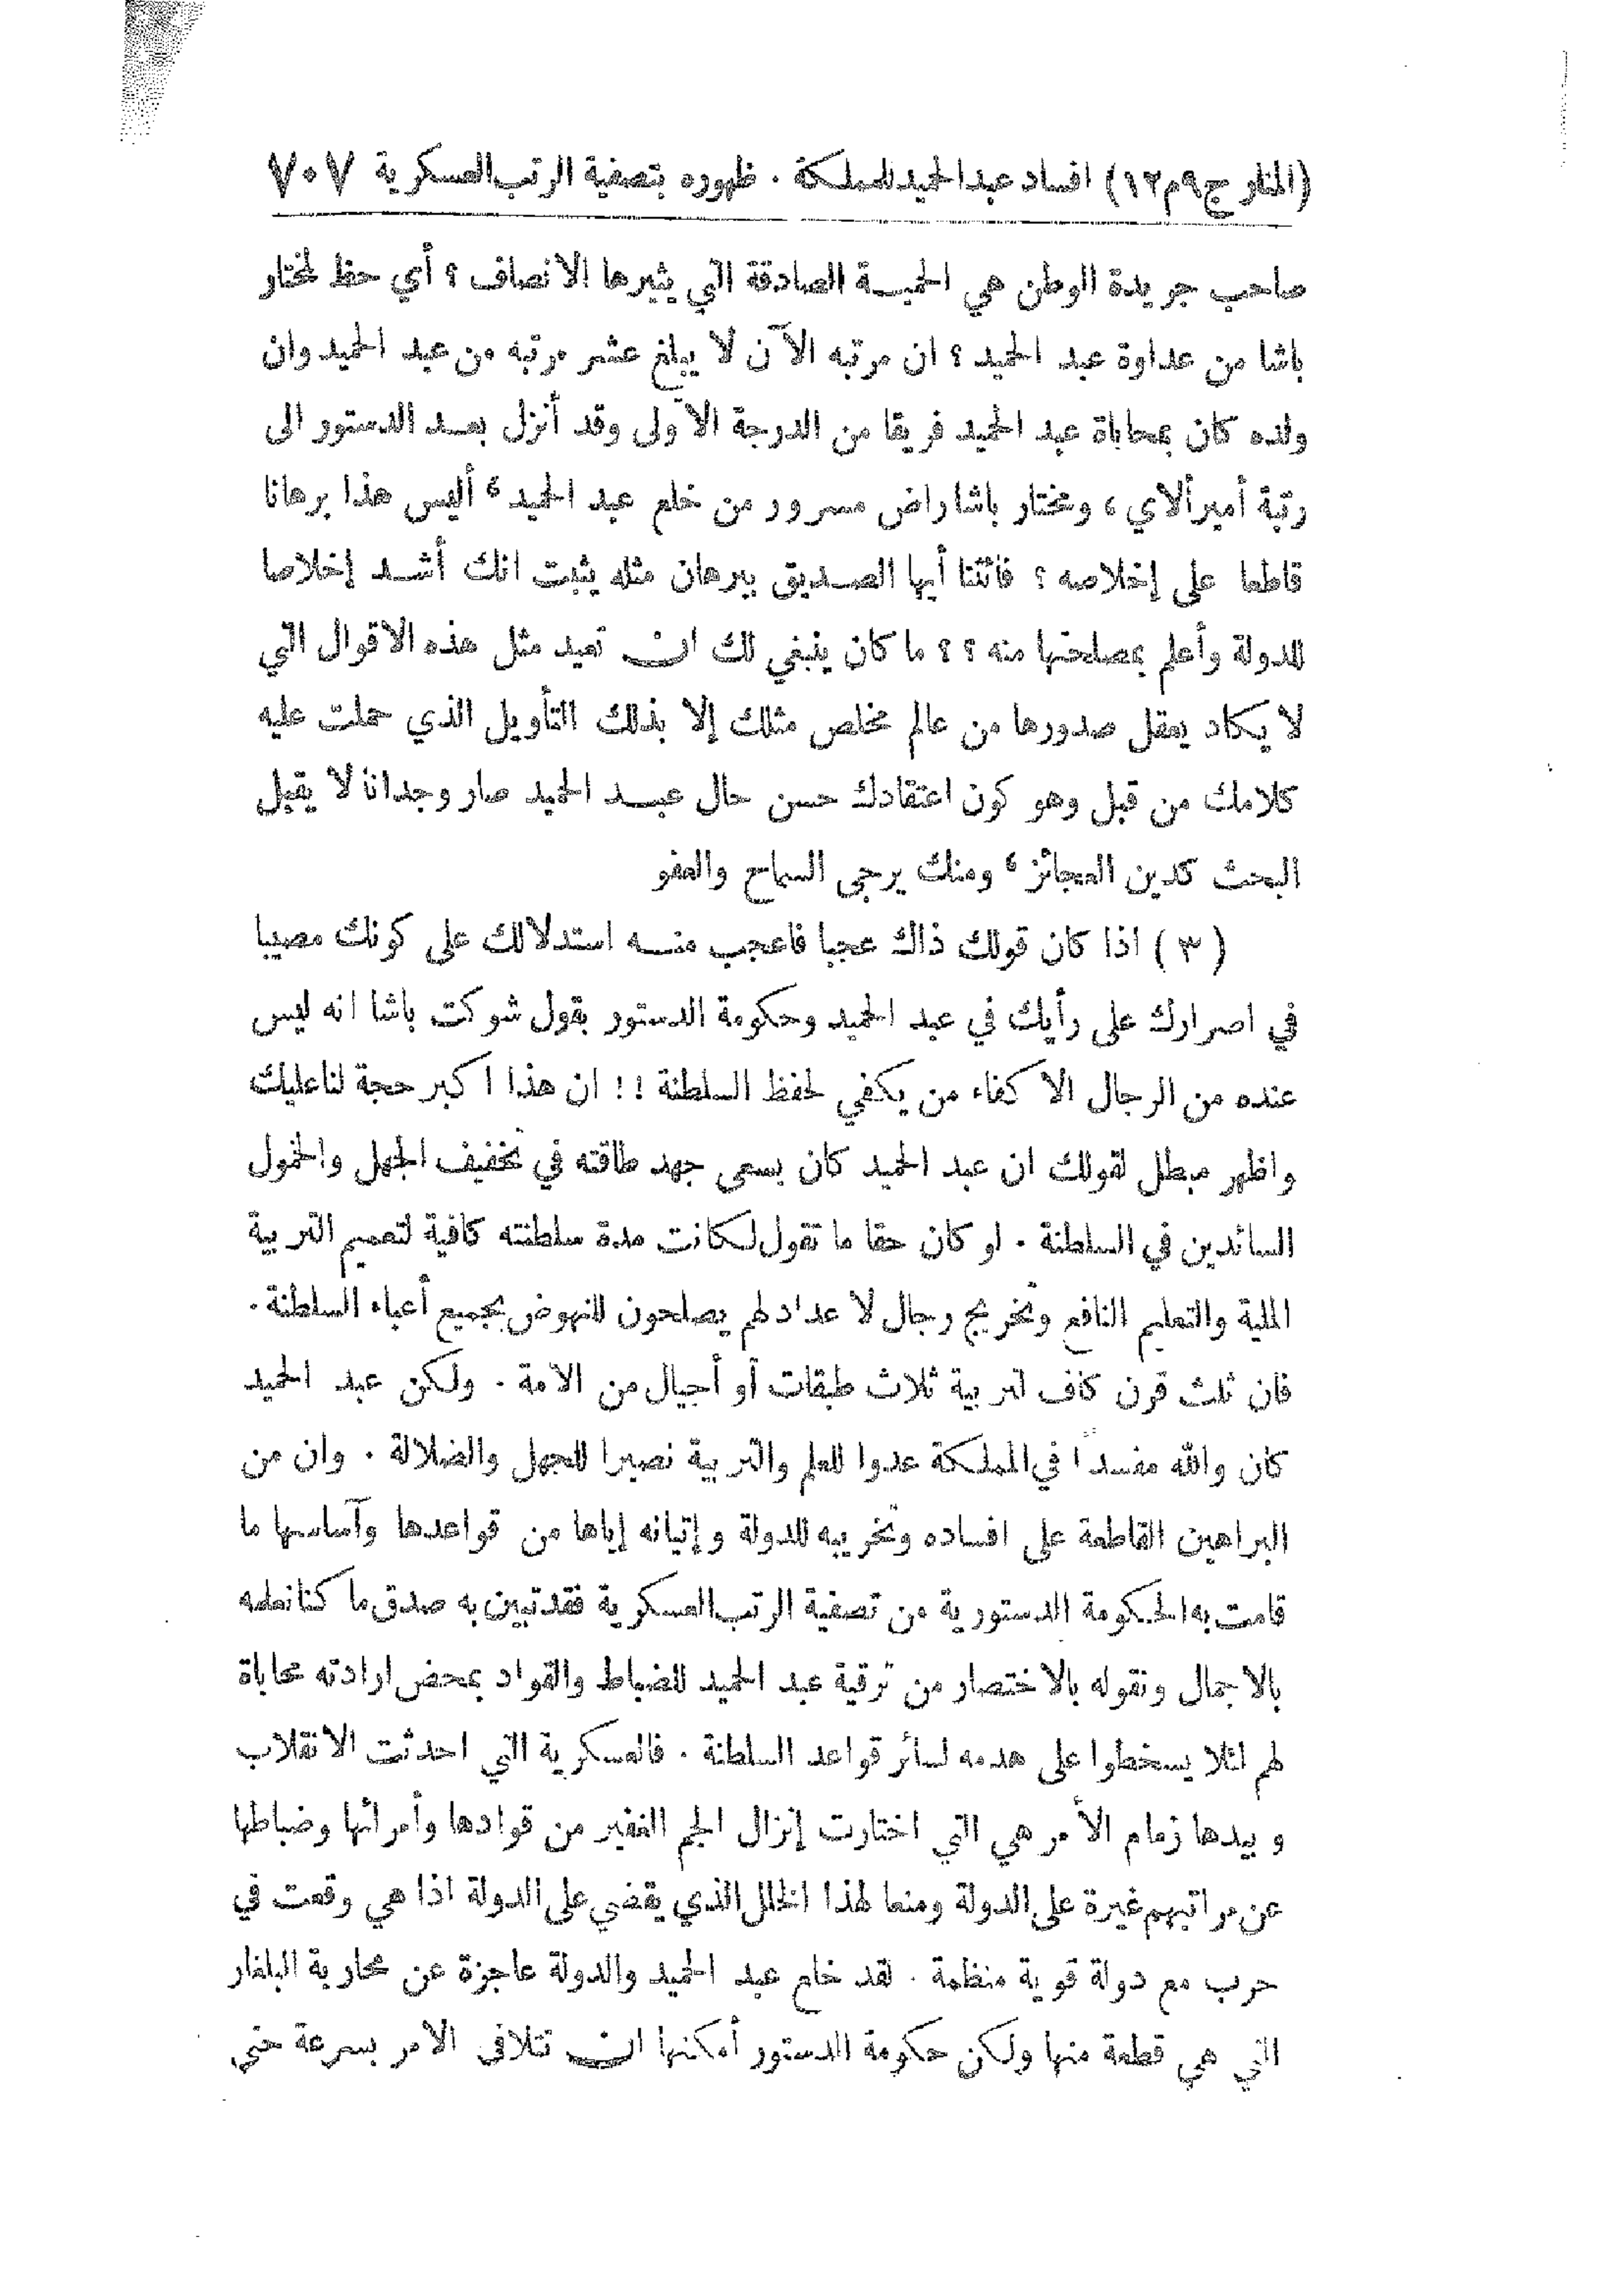 (المنار ج٩م١٢) افساد عبد الحميد للمملكة . ظهوره بتصفية الرتب العسكرية ٧٠٧
صاحب جريدة الوطن هي الحمية الصادقة التي يثيرها الانصاف ؟ أي حظ لمختار
باشا من عداوة عبد الحميد ؟ ان مرتبه الآن لا يبلغ عشر مرتبه من عبد الحميد وان
ولده كان بمحاباة عبد الحميد فريقا من الدرجة الأولى وقد أنزل بعد الدستور الى
رتبة أميرألاي ، ومختار باشا راض مسرور من خلع عبد الحميد ، أليس هذا برهانا
قاطعا على إخلاصه ؟ فأتنا أيها الصديق ببرهان مثله يثبت انك أشد إخلاصا
للدولة وأعلم بمصلحتها منه ؟؟ ما كان ينبغي لك ان تعيد مثل هذه الاقوال التي
لا يكاد يعقل صدورها من عالم مخلص مثلك إلا بذلك التأويل الذي حملت عليه
كلامك من قبل وهو كون اعتقادك حسن حال عبد الحميد صار وجدانا لا يقبل
البحث كدين العجائز ، ومنك يرجى السماح والعفو
(٣) اذا كان قولك ذاك عجبا فاعجب منه استدلالك على كونك مصيبا
في اصرارك على رأيك في عبد الحميد وحكومة الدستور بقول شوكت باشا انه ليس
عنده من الرجال الاكفاء من يكفي لحفظ السلطنة !! ان هذا اكبر حجة لنا عليك
واظهر مبطل لقولك ان عبد الحميد كان يسعى جهد طاقته في تخفيف الجهل والخمول
السائدين في السلطنة . لو كان حقا ما تقول لكانت مدة سلطنته كافية لتعميم التربية
الملية والتعليم النافع وتخريج رجال لا عداد لهم يصلحون للنهوض بجميع أعباء السلطنة .
فان ثلث قرن كاف لتربية ثلاث طبقات أو أجيال من الامة . ولكن عبد الحميد
كان والله مفسدا في المملكة عدوا للعلم والتربية نصيرا للجهل والضلالة . وان من
البراهين القاطعة على افساده وتخريبه للدولة وإتيانه إياها من قواعدها وآساسها ما
قامت به الحكومة الدستورية من تصفية الرتب العسكرية فقد تبين به صدق ما كنا نعلمه
بالاجمال ونقوله بالاختصار من ترقية عبد الحميد للضباط والقواد بمحض ارادته محاباة
لهم لئلا يسخطوا على هدمه لسائر قواعد السلطنة . فالعسكرية التي احدثت الانقلاب
وبيدها زمام الأمر هي التي اختارت إنزال الجم الغفير من قوادها وأمرائها وضباطها
عن مراتبهم غيرة على الدولة ومنعا لهذا الخلل الذي يقضي على الدولة اذا هي وقعت في
حرب مع دولة قوية منظمة . لقد خلع عبد الحميد والدولة عاجزة عن محاربة البلغار
التي هي قطعة منها ولكن حكومة الدستور أمكنها ان تتلافى الامر بسرعة حتى